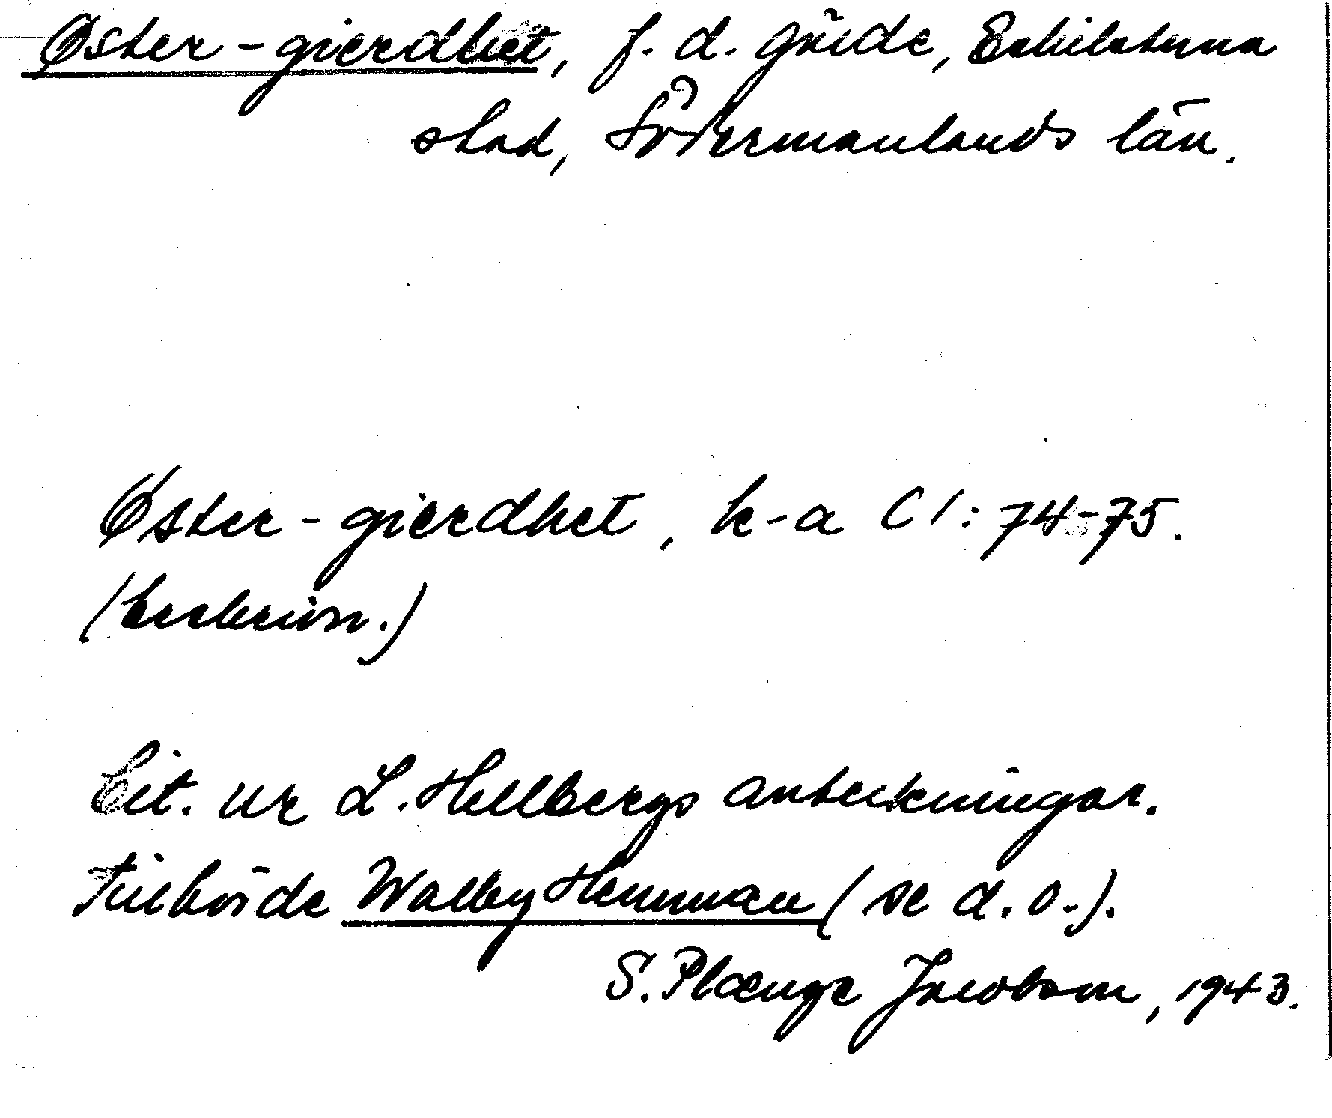 Øster-gierdhet, f. d. gärde, Eskilstuna
stad, Södermanlands län.
Øster-gierdhet, k-a C1:74-75.
(beskrivn.)
Cit. ur L. Hellbergs anteckningar.
Tillhörde Walby Hemman (se d. o.).
S. Plænge Jacobson, 1943.